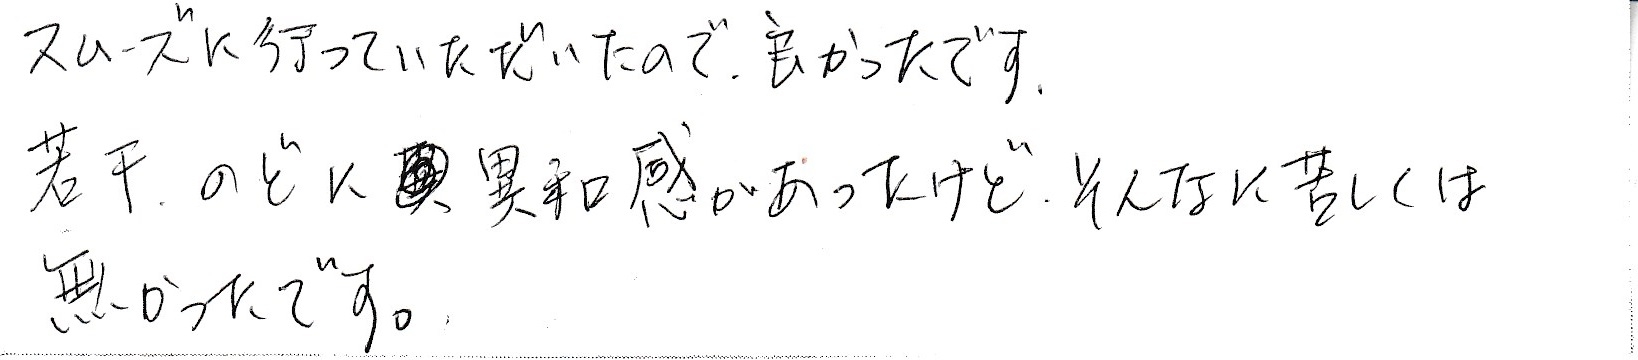 スムーズに行っていただいたので、良かったです。
若干、のどに異和感があったけど、そんなに苦しくは
無かったです。